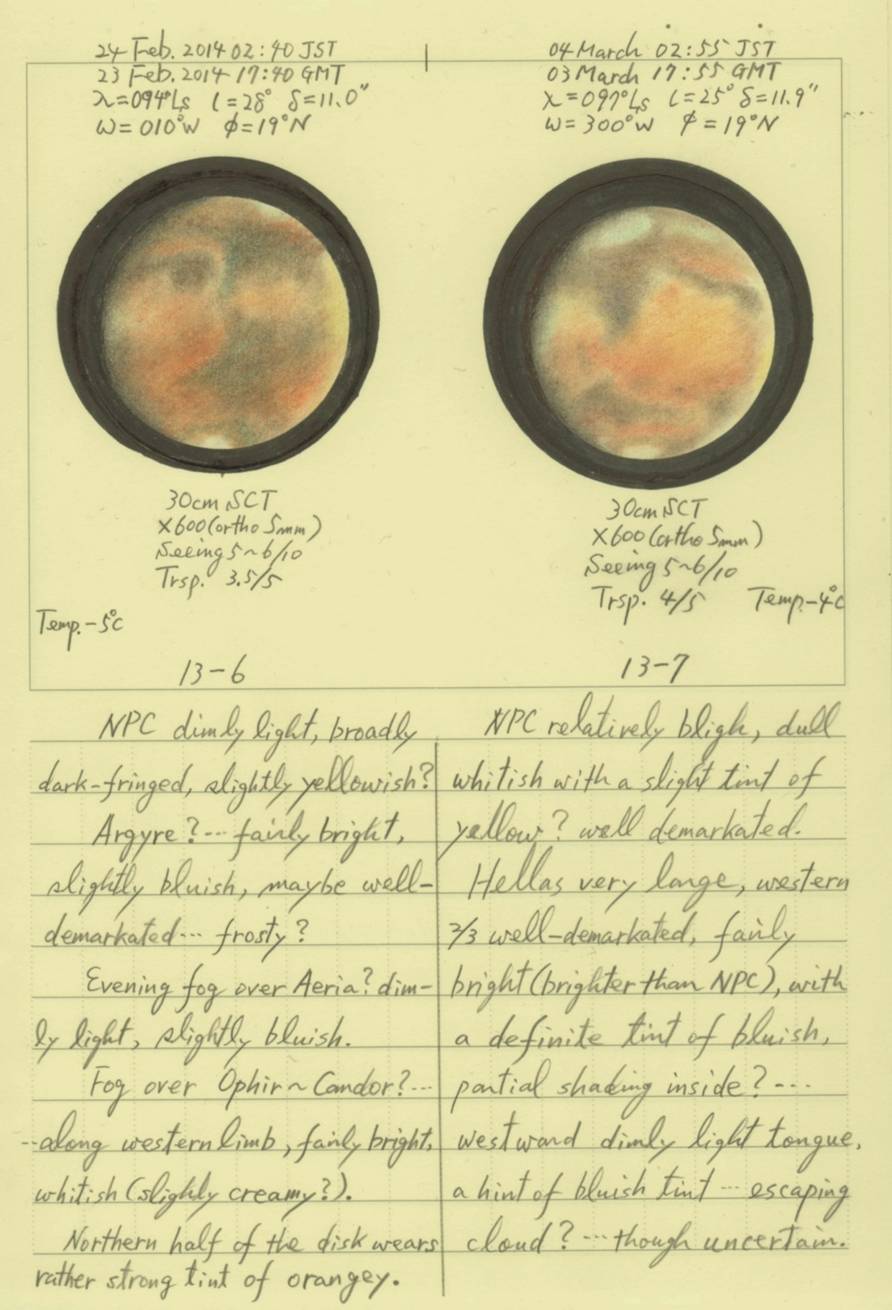 24 Feb. 2014 02:40 JST
23 Feb. 2014 17:40 GMT
λ=094°Ls ι=28° δ=11.0"
ω=010°W φ=19°N
30cm SCT
×600(ortho 5mm)
Seeing 5~6/10
Trsp. 3.5/5
Temp.-5°C
13-6
04 March 02:55 JST
03 March 17:55 GMT
λ=097°Ls ι=25° δ=11.9"
ω=300°W φ=19°N
30cm SCT
×600(ortho 5mm)
Seeing 5~6/10
Trsp. 4/5 Temp-4°C
13-7
NPC dimly light, broadly
dark-fringed, slightly yellowish?
Argyre?... fairly bright,
slightly bluish, maybe well-
demarkated... frosty?
Evening fog over Aeria? dim-
ly light, slightly bluish.
Fog over Ophir~Candor?...
...along western limb, fairly bright,
whitish (slighly creamy?).
Northern half of the disk wears
rather strong tint of orangey.
NPC relatively bligh, dull
whitish with a slight tint of
yellow? well demarkated.
Hellas very large, western
2/3 well-demarkated, fairly
bright(brighter than NPC), with
a definite tint of bluish,
partial shading inside? ...
westward dimly light tongue,
a hint of bluish tint ... escaping
cloud? ... though uncertain.